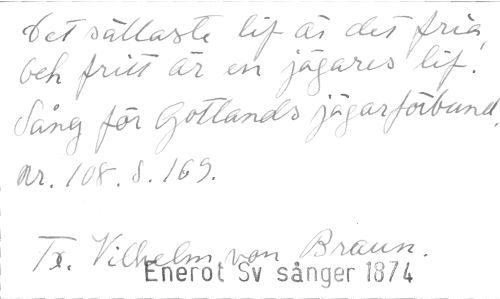 Det sällaste lif är det fria,
och fritt är en jägares lif.
Sång för Gotlands jägarförbund.
nr. 108. s. 169.
Tx. Vilhelm von Braun.
Enerot Sv sånger 1874